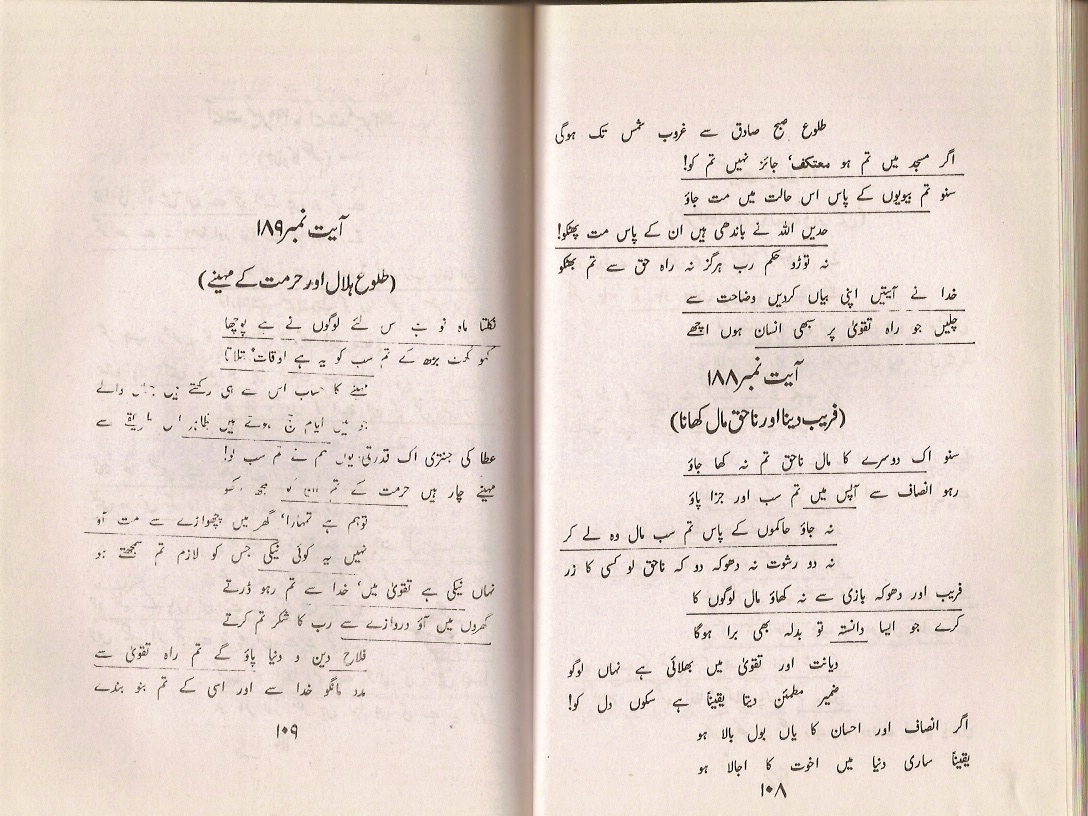 طلوع صبح صادق سے غروب شمس تک ہوگی
اگر مسجد میں تم ہو معتکف، جائز نہیں تم کو!
سنو تم بیویوں کے پاس اس حالت میں مت جاؤ
حدیں اللہ نے باندھی ہیں ان کے پاس مت پھٹکو!
نہ توڑو حکم رب ہرگز نہ راہ حق سے تم بھٹکو
خدا نے آیتیں اپنی بیاں کردیں وضاحت سے
چلیں جو راہ تقویٰ پر سبھی انسان ہوں اچھے
آیت نمبر ۱۸۸
(فریب دینا اور ناحق مال کھانا)
سنو اک دوسرے کا مال ناحق تم نہ کھا جاؤ
رہو انصاف سے آپس میں تم سب اور جزا پاؤ
نہ جاؤ حاکموں کے پاس تم سب مال وہ لے کر
نہ دو رشوت نہ دھوکہ دو کہ ناحق لو کسی کا زر
فریب اور دھوکہ بازی سے نہ کھاؤ مال لوگوں کا
کرے جو ایسا دانستہ تو بدلہ بھی برا ہوگا
دیانت اور تقویٰ میں بھلائی ہے نہاں لوگو
ضمیر مطمئن دیتا یقیناً ہے سکوں دل کو!
اگر انصاف اور احسان کا یاں بول بالا ہو
یقیناً ساری دنیا میں اخوت کا اجالا ہو
۱۰۸
آیت نمبر ۱۸۹
(طلوع ہلال اور حرمت کے مہینے)
نکلتا ماہ نو ہے کس لئے لوگوں نے ہے پوچھا
کہو گھٹ بڑھ کے تم سب کو یہ ہے اوقات بتلاتا
مہینے کا حساب اس سے ہی رکھتے ہیں والے
جو میں ایام حج ہوتے ہیں ظاہر اس طریقے سے
عطا کی جنتری اک قدرتی یوں ہم نے تم سب لو!
مہینے چار ہیں حرمت کے تم ان کو سمجھ رکھو
توہم ہے تمہارا، گھر میں پچھواڑے سے مت آؤ
نہیں یہ کوئی نیکی جس کو لازم تم سمجھتے ہو
نہاں نیکی ہے تقویٰ میں، خدا سے تم رہو ڈرتے
گھروں میں آؤ دروازے سے رب کا شکر تم کرتے
فلاح دین و دنیا پاؤ گے تم راہ تقویٰ سے
مدد مانگو خدا سے اور اسی کے تم بنو بندے
۱۰۹